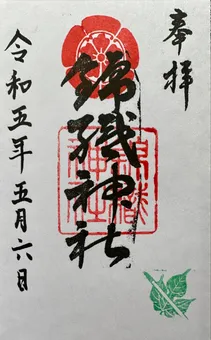 奉拝
錦織神社
令和五年五月六日
錦織
神社